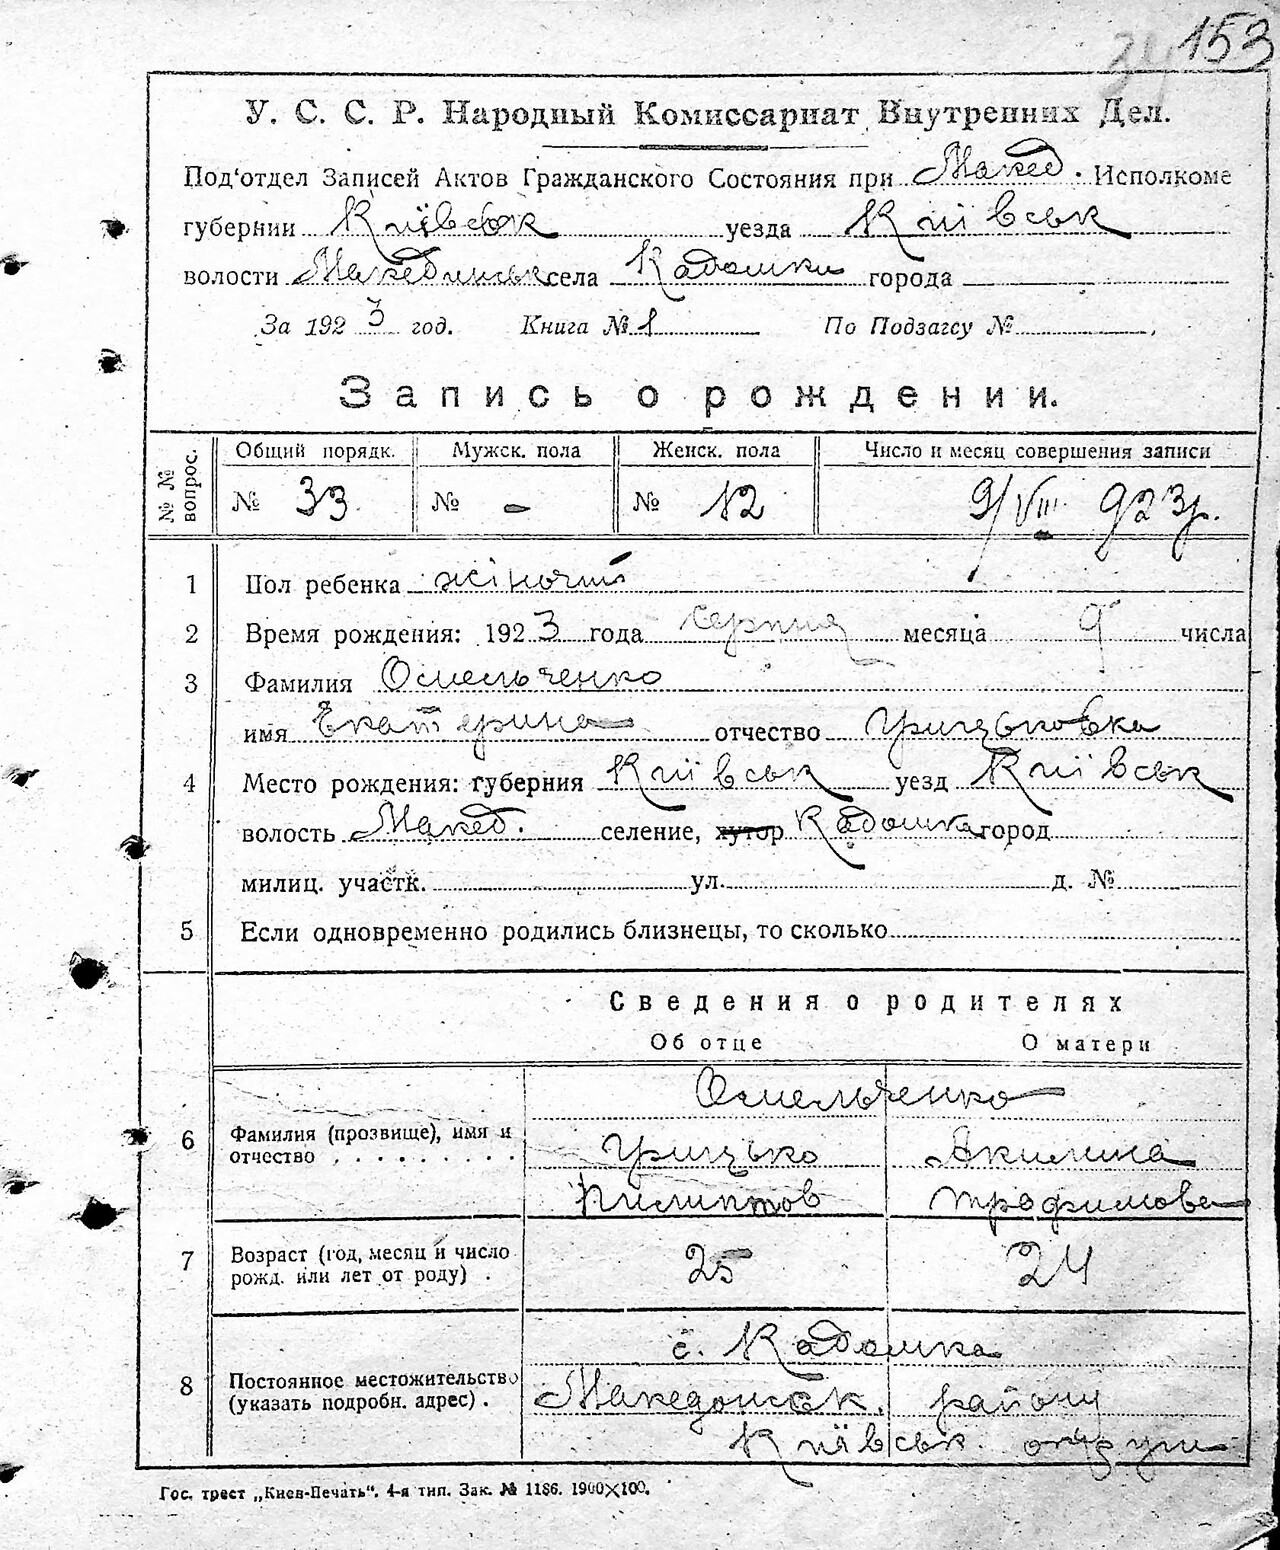 34 153
У. С. С. Р. Народный Комиссариат Внутренних Дел.
Под‘отдел Записей Актов Гражданского Состояния при Макед. Исполкоме
губернии Київськ уезда Київськ
волости Македонськ села Кадомки города
За 1923 год. Книга № 1 По Подзагсу №
Запись о рождении.
№ № вопрос. Общий порядк. Мужск. пола Женск. пола Число и месяц совершения записи
№ 33 № - № 12 9/VIII 923р.
1 Пол ребенка жіночий
2 Время рождения: 1923 года серпня месяца 9 числа
3 Фамилия Омельченко
имя Екатерина отчество Грицьковна
4 Место рождения: губерния Київськ уезд Київськ
волость Макед. селение, хутор Кадомка город
милиц. участк. ул. д. №
5 Если одновременно родились близнецы, то сколько
Сведения о родителях
Об отце О матери
Омельченко
6 Фамилия (прозвище), имя и отчество Грицько Якилина
Пилиппов Трофимова
7 Возраст (год, месяц и число рожд. или лет от роду) . 25 24
с. Кадомка
8 Постоянное местожительство (указать подробн. адрес) . Македонськ. району
Київськ. округи
Гос. трест „Киев-Печать“. 4-я тип. Зак. № 1186. 1900×100.